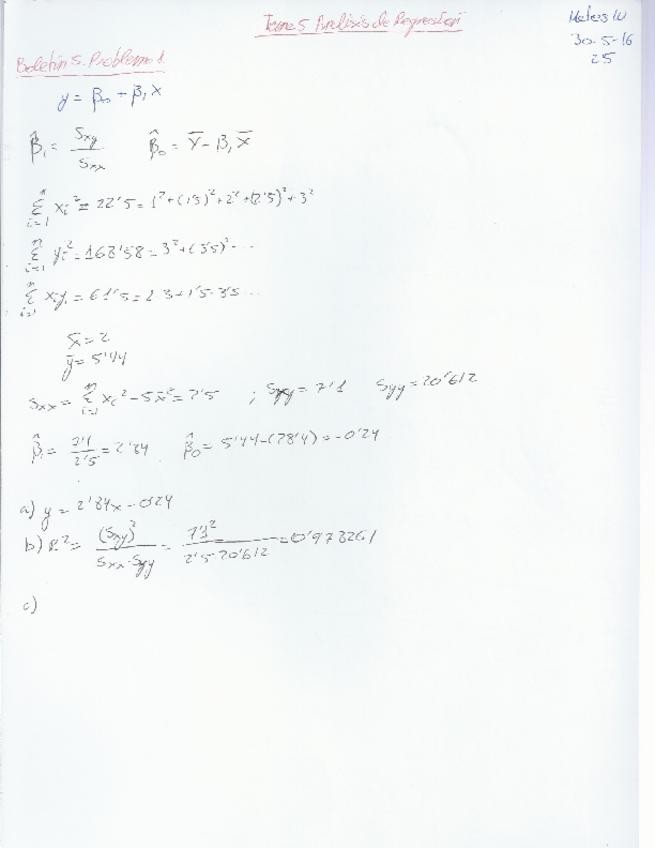 Tema 5 Análisis de Regresión
Mates IV
30-5-16
25
Boletín 5. Problema 1
y = β₀ + β₁x
β̂₁ = Sxy / Sxx    β̂₀ = ȳ - β₁x̄
Σⁿᵢ₌₁ xᵢ² = 22'5 = 1² + (1'5)² + 2² + (2'5)² + 3²
Σⁿᵢ₌₁ yᵢ² = 168'58 = 3² + (3'5)² ...
Σⁿᵢ₌₁ xᵢyᵢ = 61'5 = 1·3 + 1'5·3'5 ...
x̄ = 2
ȳ = 5'44
Sxx = Σⁿᵢ₌₁ xᵢ² - 5x̄² = 2'5 ; Sxy = 7'1    Syy = 20'612
β̂₁ = 7'1 / 2'5 = 2'84    β̂₀ = 5'44 - (2·8'4) = -0'24
a) y = 2'84x - 0'24
b) R² = (Sxy)² / Sxx·Syy = 7'1² / 2'5·20'612 = 0'978261
c)